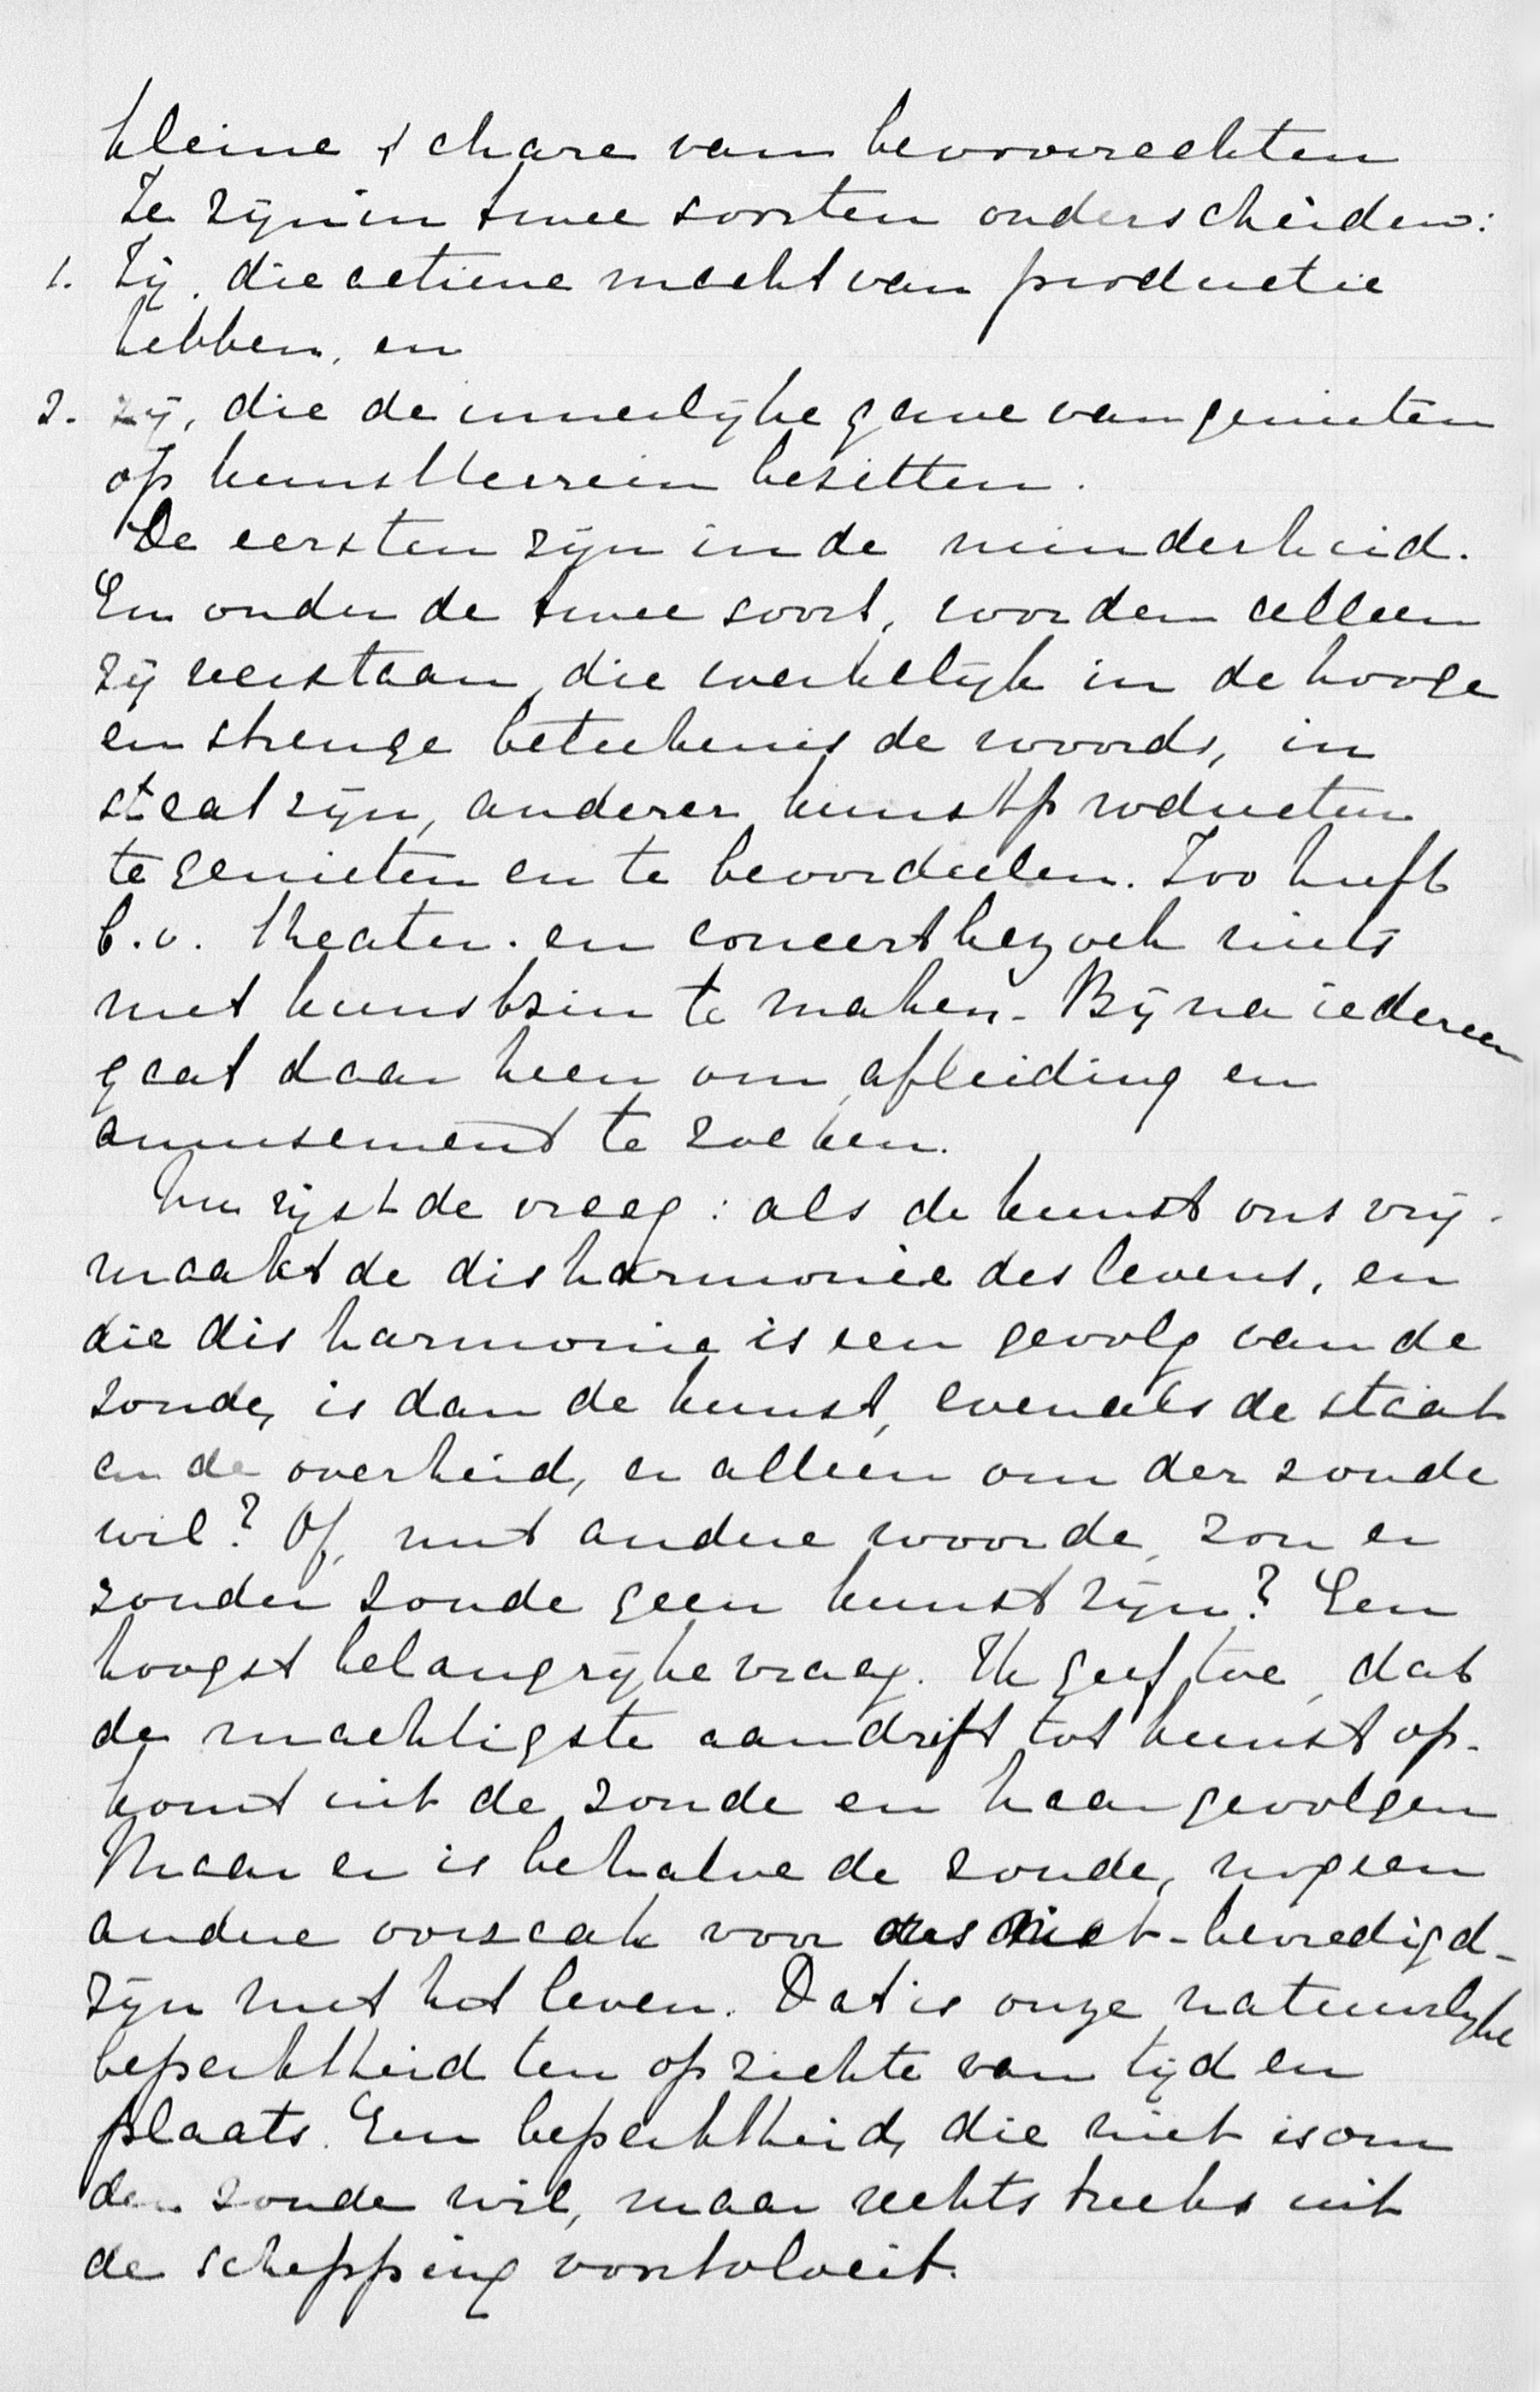 kleine schare van bevoorrechten
Ze zijn in twee soorten onderscheiden:
1. Zij, die actieve macht van productie
hebben, en
2. zij, die de innerlijke gave van genieten
op kunstterrein bezitten.
De eersten zijn in de minderheid.
En onder de twee soort, worden alleen
zij verstaan, die werkelijk in de hooge
en strenge beteekenis de woords, in
staat zijn, anderer kunstproducten
te genieten en te beoordeelen. Zoo heeft
b.v. theater- en concertbezoek niets
met kunstzin te maken. Bijna iedereen
gaat daar heen om afleiding en
amusement te zoeken.
Nu rijst de vraag: als de kunst ons vrij-
maakt de disharmonie des levens, en
die disharmonie is een gevolg van de
zonde, is dan de kunst, evenals de staat
en de overheid, er alleen om der zonde
wil? Of, met andere woorde, zou er
zonder zonde geen kunst zijn? Een
hoogst belangrijke vraag. Ik geef toe, dat
de machtigste aandrift tot kunst op-
komt uit de zonde en haar gevolgen
Maar er is behalve de zonde, nog een
andere oorzaak voor ons niet-bevredigd-
zijn met het leven. Dat is onze natuurlijke
beperktheid ten opzichte van tijd en
plaats. Een beperktheid, die niet is om
der zonde wil, maar rechtstreeks uit
de schepping voortvloeit.